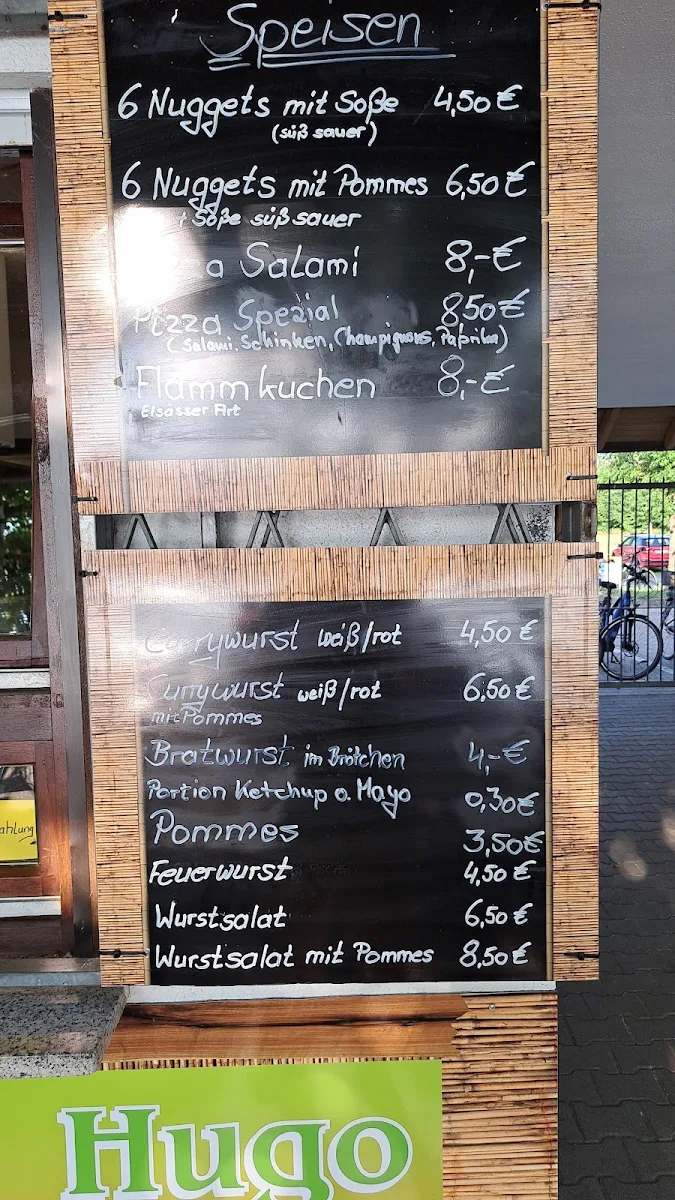 Speisen
6 Nuggets mit Soße 4,50 €
(süß sauer)
6 Nuggets mit Pommes 6,50 €
+ Soße süß sauer
a Salami 8,-€
Pizza Spezial 8,50 €
(Salami, Schinken, Champignons, Paprika)
Flammkuchen 8,-€
Elsässer Art
Currywurst weiß/rot 4,50 €
Currywurst weiß/rot 6,50 €
mit Pommes
Bratwurst im Brötchen 4,-€
Portion Ketchup o. Mayo 0,30 €
Pommes 3,50 €
Feuerwurst 4,50 €
Wurstsalat 6,50 €
Wurstsalat mit Pommes 8,50 €
ahlung
Hugo